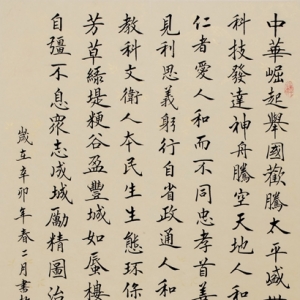 中華崛起舉國歡騰太平盛
科技發達神舟騰空天地人和
仁者愛人和而不同忠孝首善
見利思義躬行自省政通人和
教科文衛人本民生生態環保
芳草綠堤粳谷盈豐城如蜃樓
自彊不息衆志成城勵精圖治
歲在辛卯年春二月書